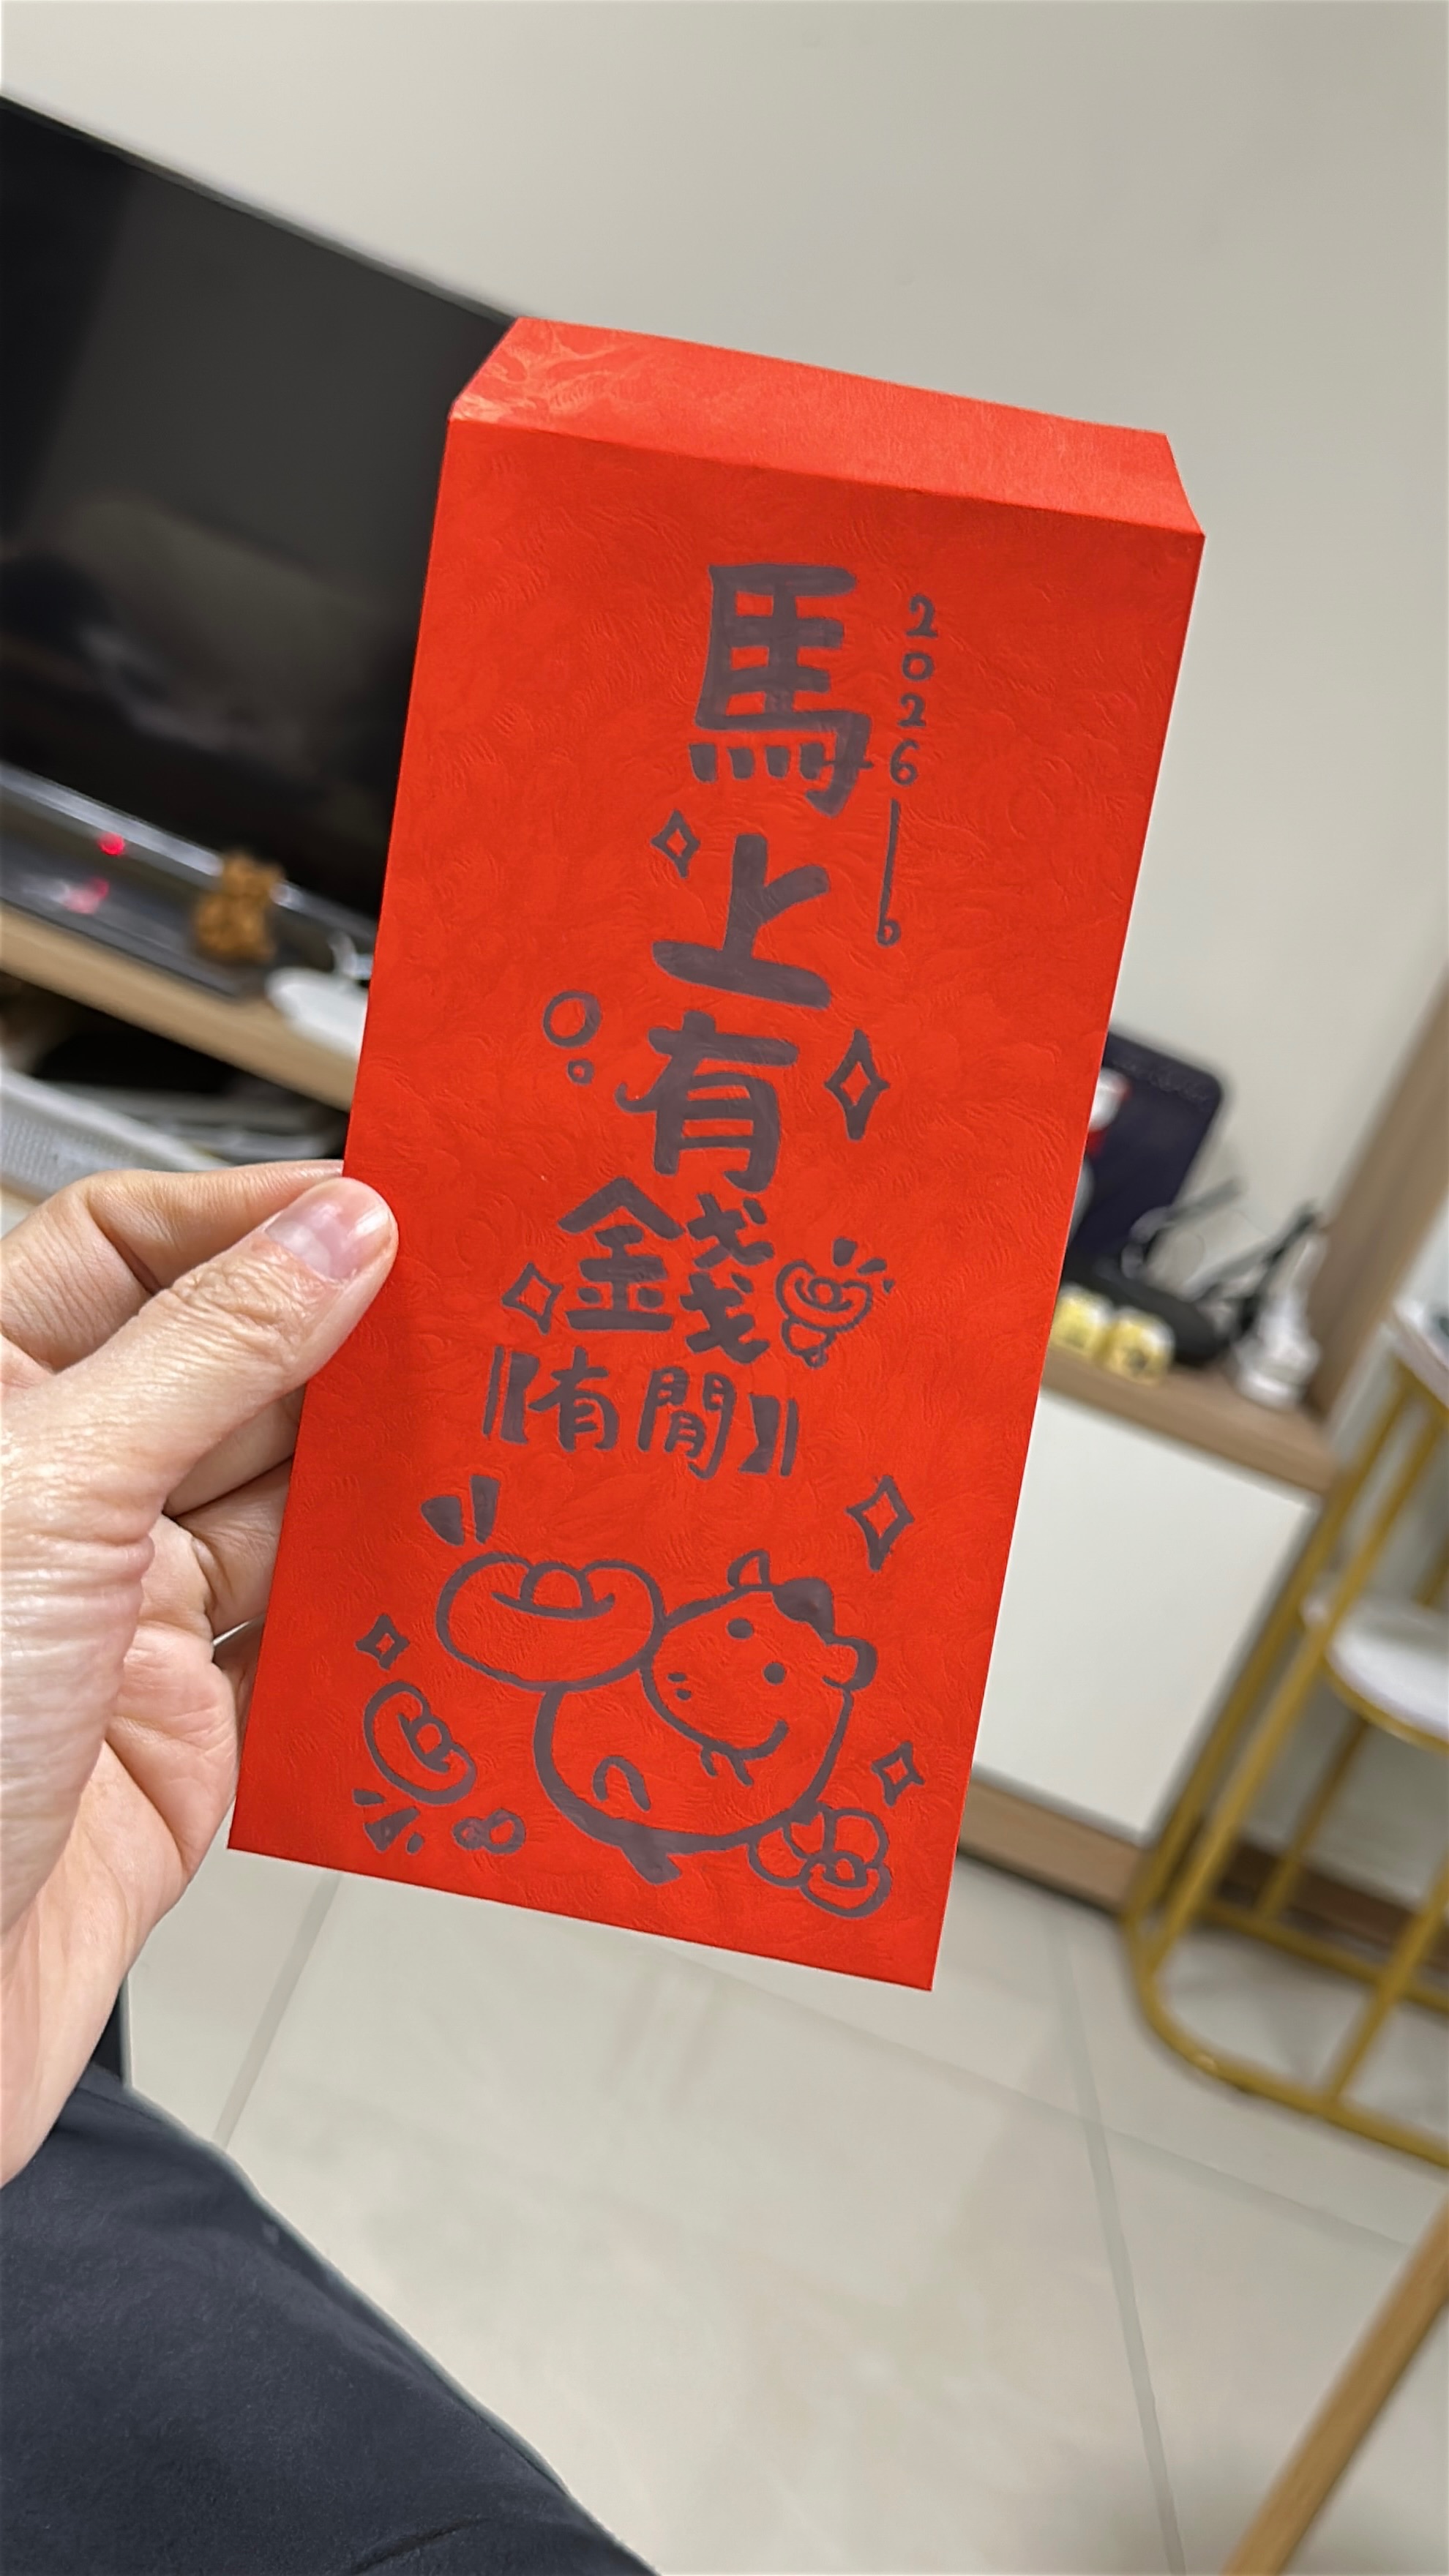 2026
馬上有錢
有閒